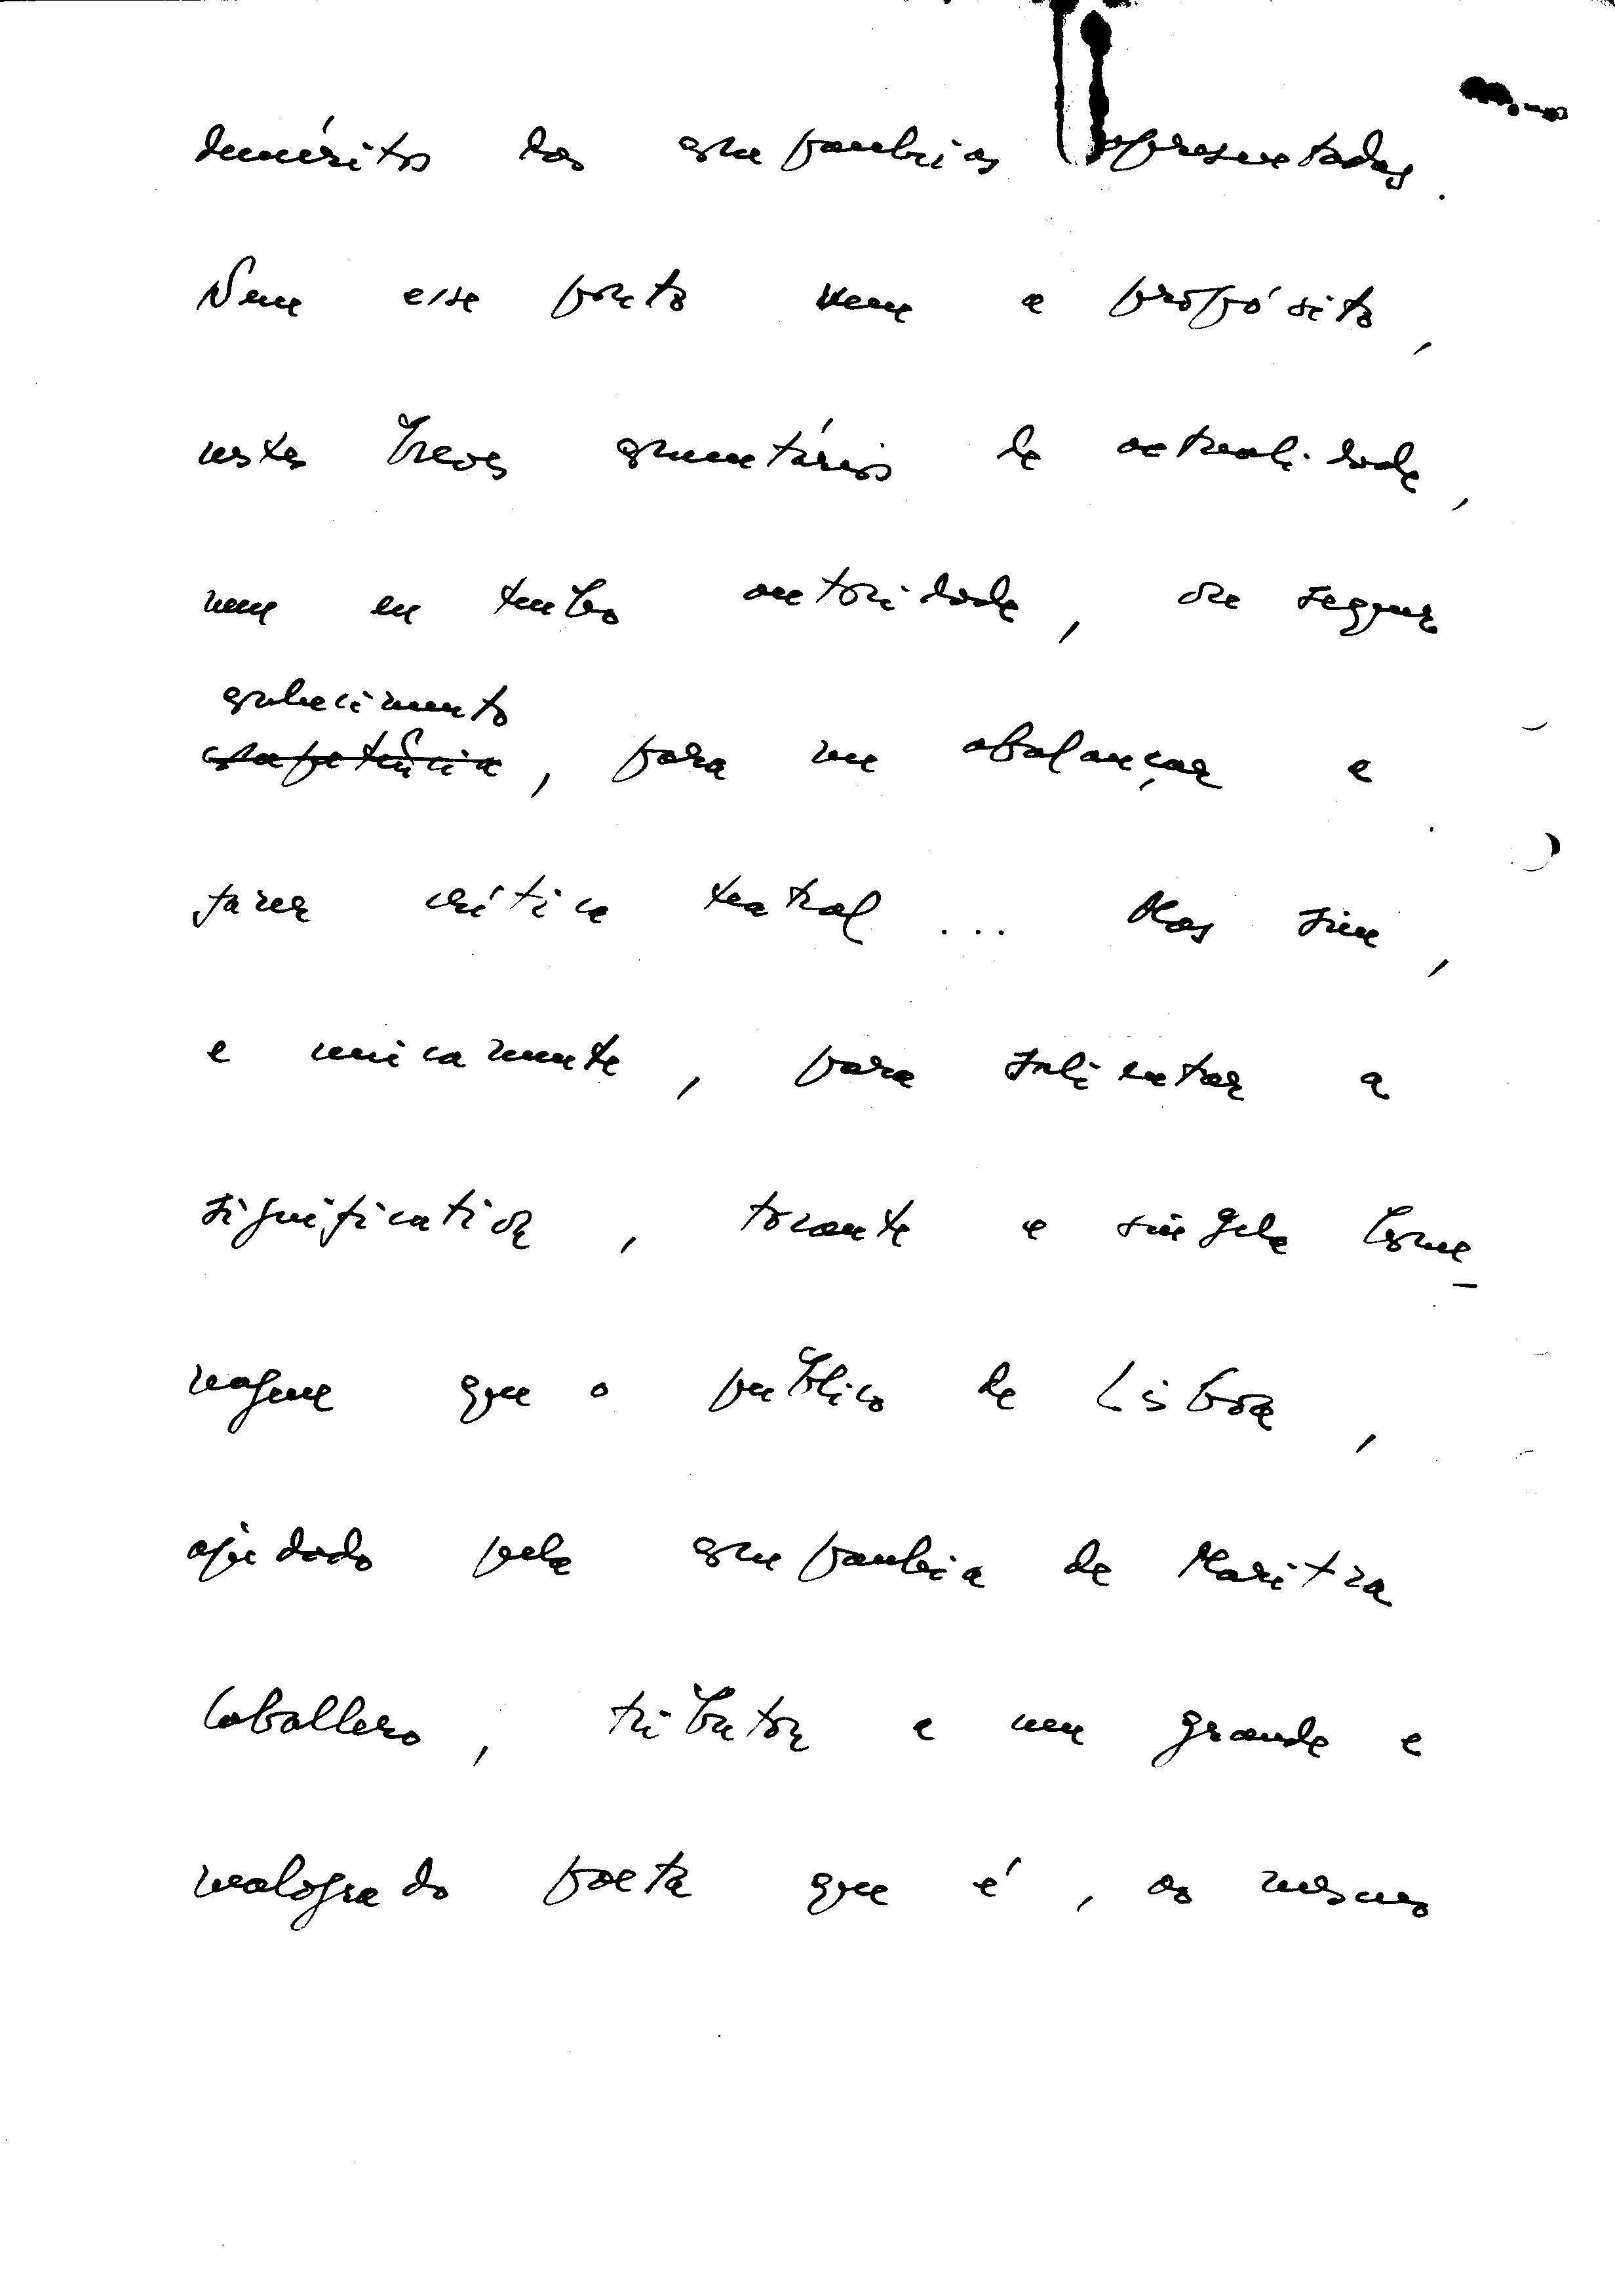 deméritos das companhias apresentadas.
Nem esse ponto vem a propósito,
nestes breves comentários de actualidade,
nem eu tenho autoridade, ou sequer
conhecimento
competência, para me abalançar a
fazer crítica teatral... Mas sim,
e unicamente, para salientar a
significativa, tocante e singela home-
nagem que o público de Lisboa,
ajudado pela companhia de Maritza
Caballero, tributou a um grande e
malogrado poeta que é, ao mesmo